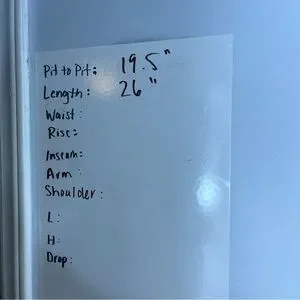 Pit to Pit: 19.5"
Length: 26"
Waist:
Rise:
Inseam:
Arm:
Shoulder:
L:
H:
Drop: